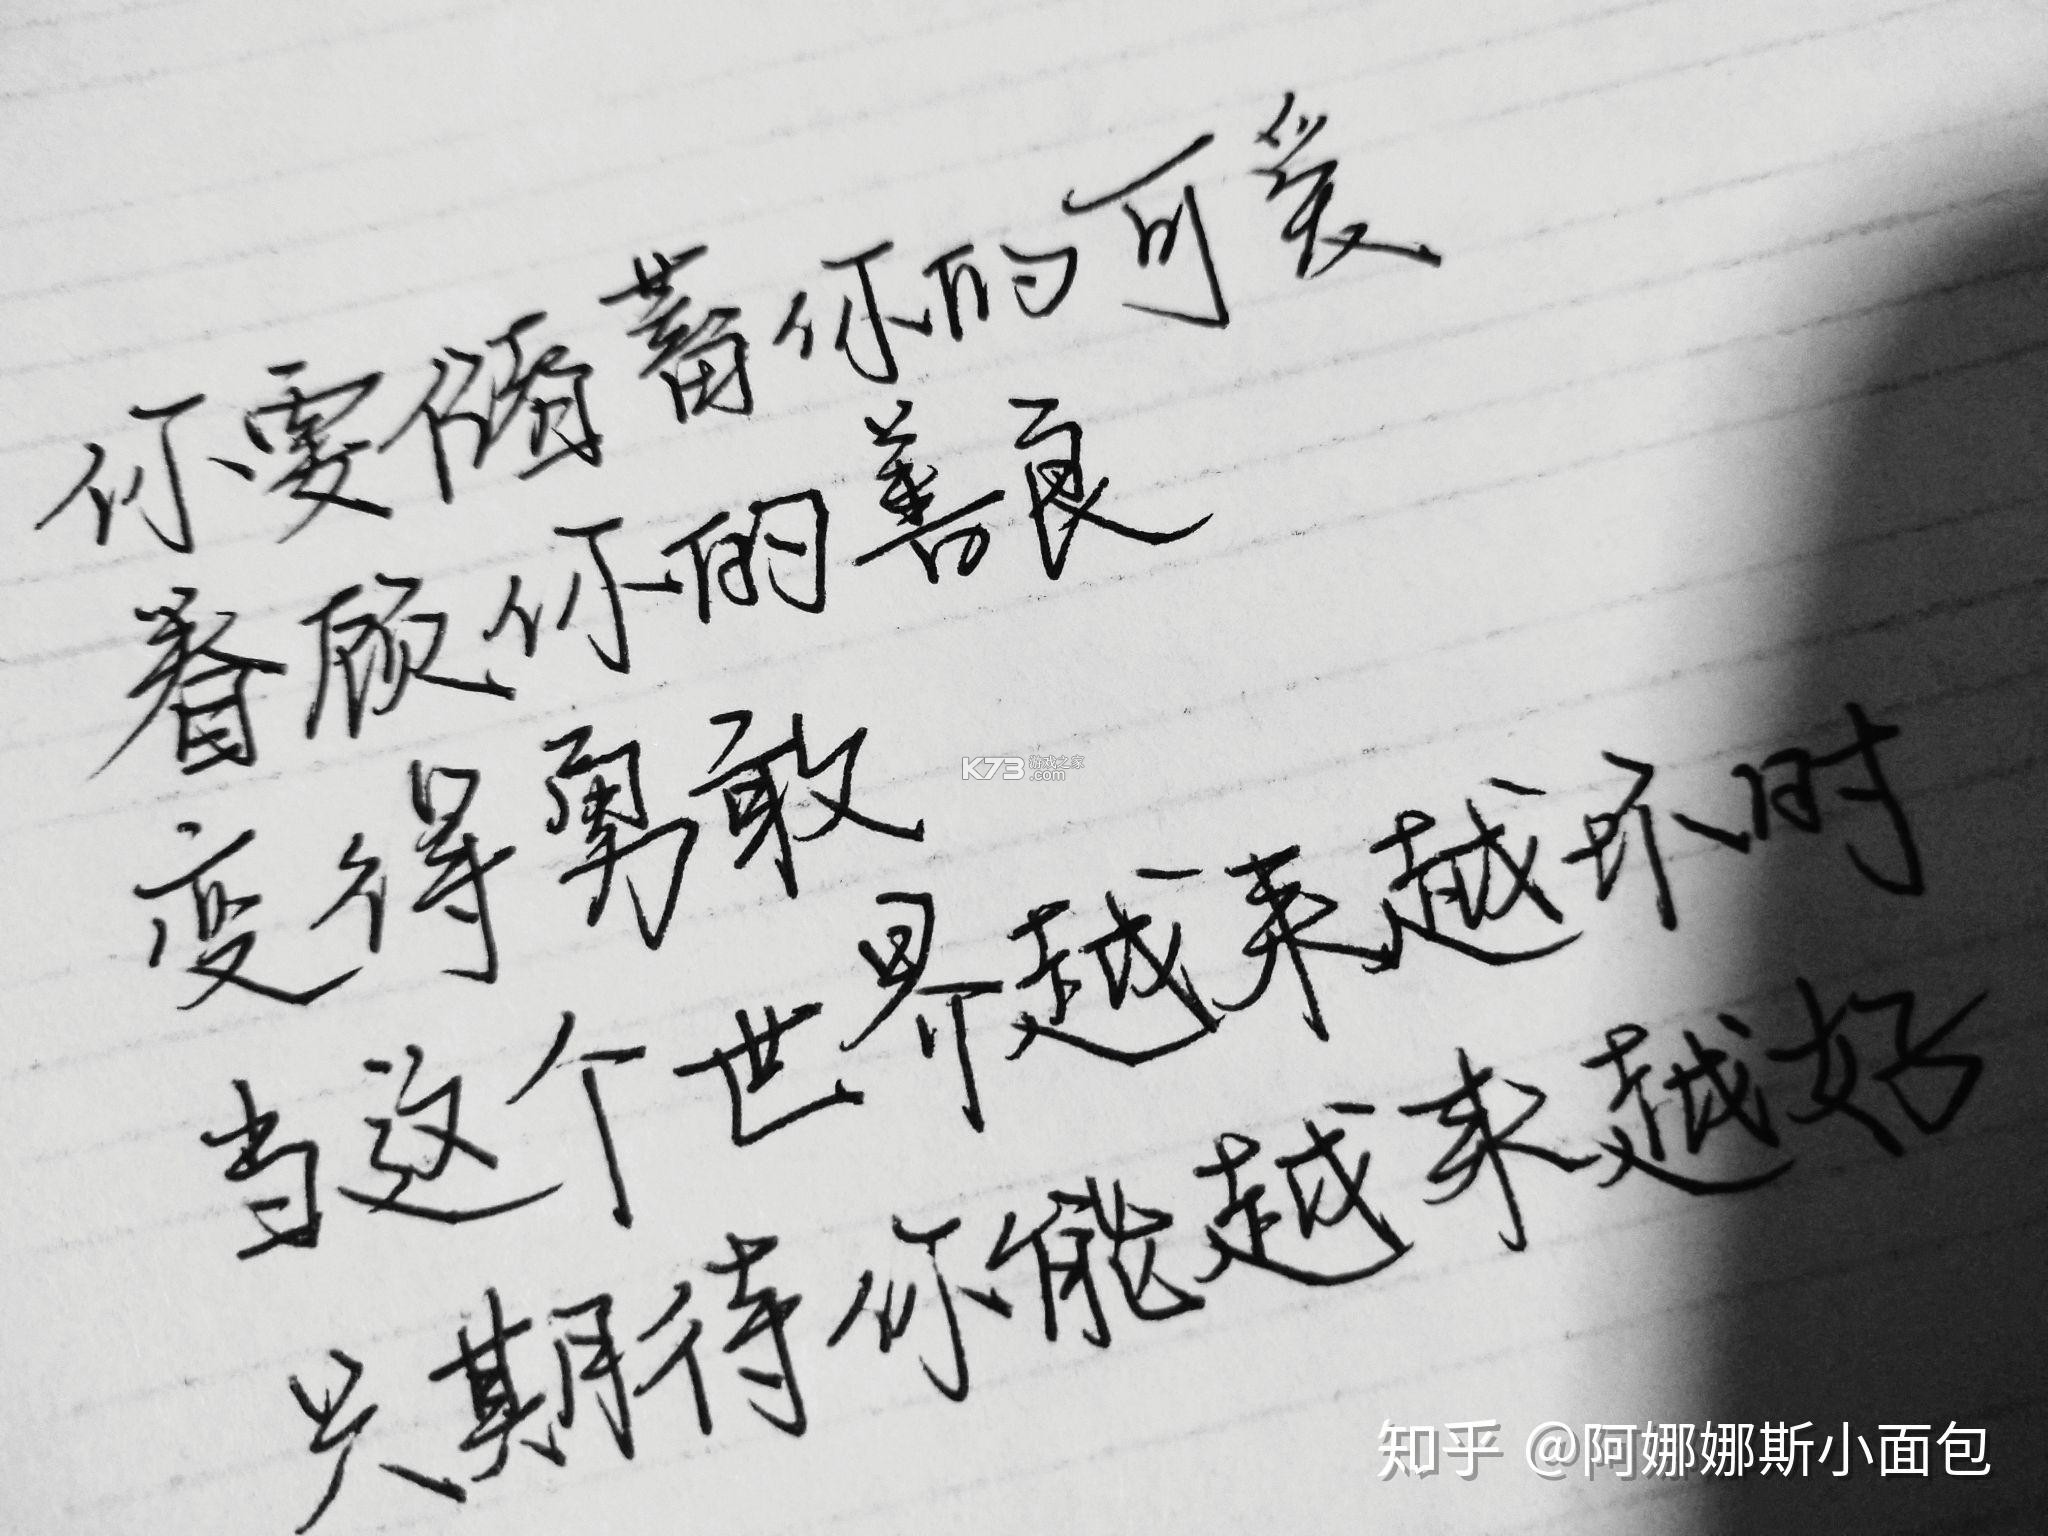 你要储蓄你的可爱
眷顾你的善良
变得勇敢
当这个世界越来越坏时
只期待你能越来越好
K73 游戏之家
.com
知乎 @阿娜娜斯小面包